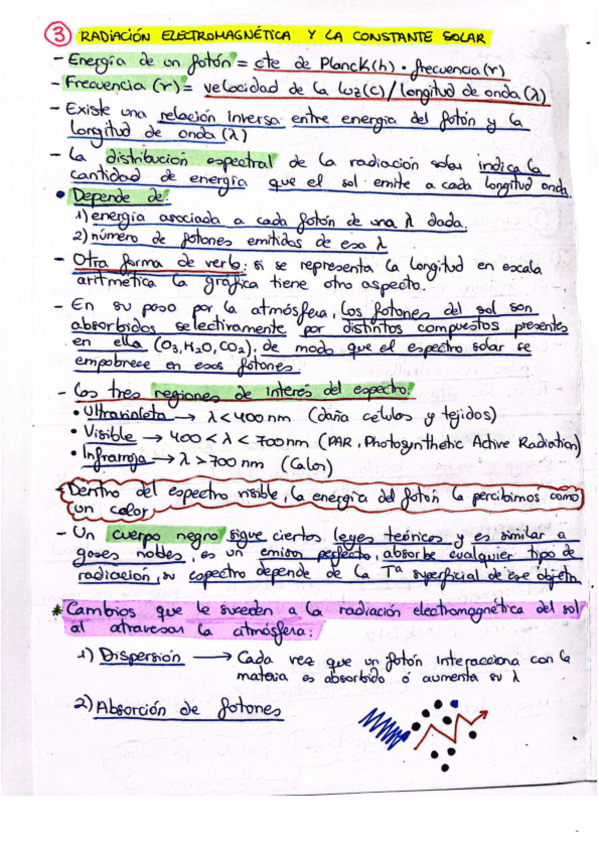 3 RADIACIÓN ELECTROMAGNÉTICA Y LA CONSTANTE SOLAR
- Energía de un fotón = cte de Planck(h) · frecuencia(r)
- Frecuencia (r) = velocidad de la luz(c)/longitud de onda(λ)
- Existe una relación inversa entre energía del fotón y la
longitud de onda (λ)
- La distribución espectral de la radiación solar indica la
cantidad de energía que el sol emite a cada longitud onda.
• Depende de:
1) energía asociada a cada fotón de una λ dada.
2) número de fotones emitidos de esa λ
- Otra forma de verlo: si se representa la longitud en escala
aritmética la gráfica tiene otro aspecto.
- En su paso por la atmósfera, los fotones del sol son
absorbidos selectivamente por distintos compuestos presentes
en ella (O3, H2O, CO2), de modo que el espectro solar se
empobrece en esos fotones
- Los tres regiones de interés del espectro:
• Ultravioleta → λ < 400 nm (daña células y tejidos)
• Visible → 400 < λ < 700 nm (PAR, Photosynthetic Active Radiation)
• Infrarroja → λ > 700 nm (calor)
- Dentro del espectro visible, la energía del fotón la percibimos como
un color
- Un cuerpo negro sigue ciertos leyes teóricos y es similar a
gases nobles, es un emisor perfecto, absorbe cualquier tipo de
radiación, su espectro depende de la Tª superficial de ese objeto.
* Cambios que le suceden a la radiación electromagnética del sol
al atravesar la atmósfera:
1) Dispersión → Cada vez que un fotón interacciona con la
materia es absorbido ó aumenta su λ
2) Absorción de fotones